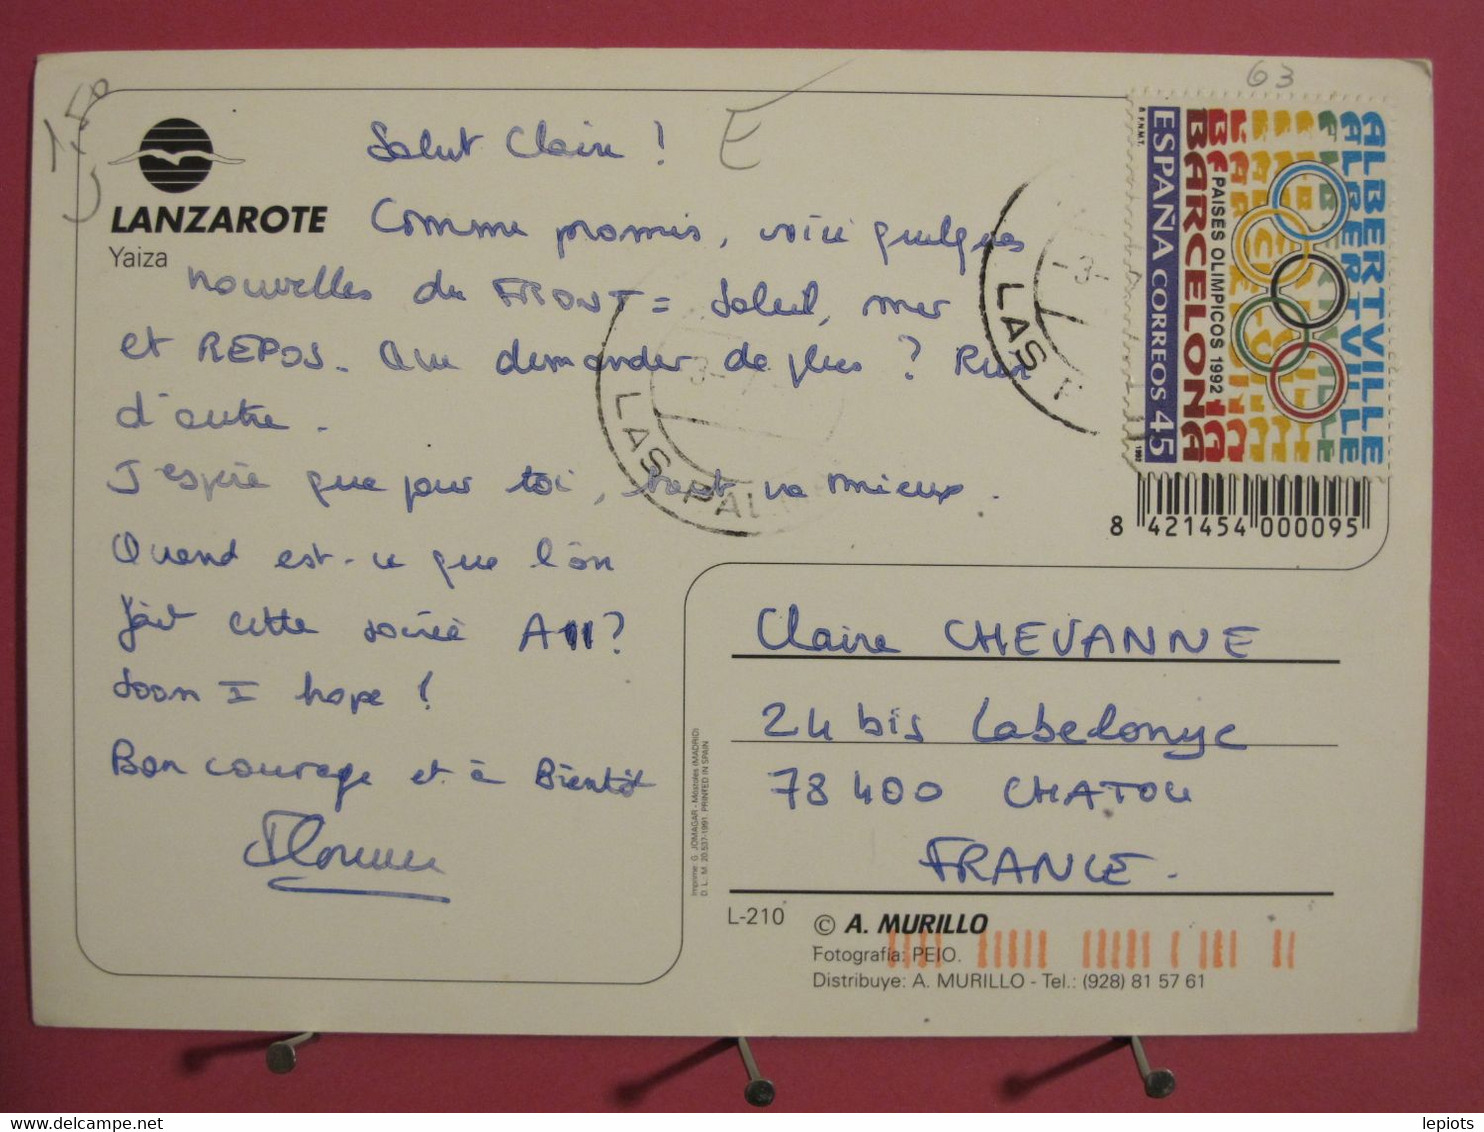 1,50
E
63
LANZAROTE
Yaiza
Salut Claire !
Comme promis, voici quelques
nouvelles du FRONT = Soleil, mer
et REPOS. Que demander de plus ? Rien
d'autre.
J'espère que pour toi, tout va mieux.
Quand est-ce que l'on
fait cette soirée A11 ?
Soon I hope !
Bon courage et à Bientôt
LAS PAL
-3-
LAS P
ESPAÑA CORREOS 45
& F.N.M.T.
1992
BARCELONA
PAISES OLIMPICOS 1992
ALBERTVILLE
8 421454 000095
Claire CHEVANNE
24 bis Labelonye
78 400 CHATOU
FRANCE.
Imprime: G. JOMAGAR - Móstoles (MADRID)
D. L. M. 20.537-1991. PRINTED IN SPAIN
L-210
© A. MURILLO
Fotografía: PEIO.
Distribuye: A. MURILLO - Tel.: (928) 81 57 61
delcampe.net
lepiots